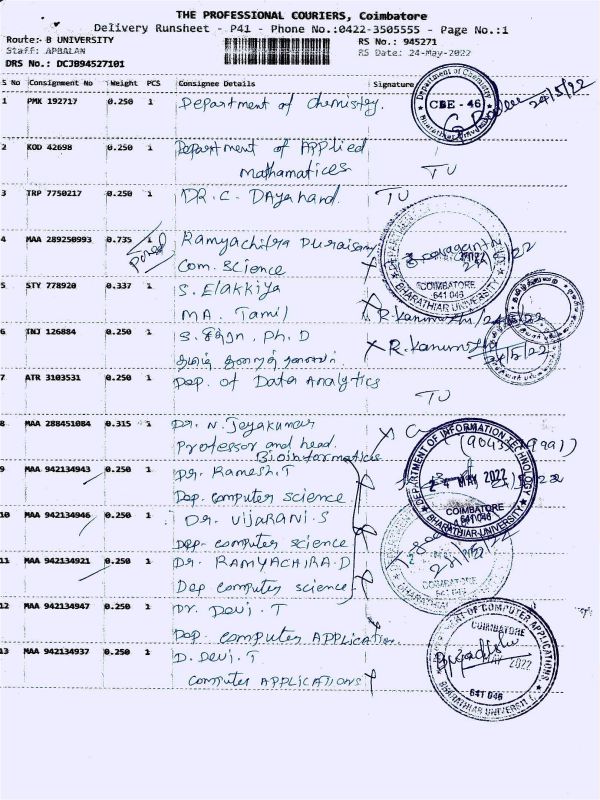 THE PROFESSIONAL COURIERS, Coimbatore
Delivery Runsheet - P41 - Phone No.:0422-3505555 - Page No.:1
Route: B UNIVERSITY RS No.: 945271
Staff: APBALAN RS Date: 24-May-2022
DRS No.: DCJB94527101
S No Consignment No Weight PCS Consignee Details Signature
1 PMK 192717 0.250 1 Department of Chemistry.
Department of Chemistry
CBE - 46
Bharathiar University
24/5/22
2 KOD 42698 0.250 1 Department of Applied
Mathamatices TU
3 TRP 7750217 0.250 1 DR. C. Dayanand. TU
4 MAA 289250993 0.735 1 Ramyachitra Duraisamy
Com. Science
COIMBATORE
641 046
BHARATHIAR UNIVERSITY
5 STY 778920 0.337 1 S. Elakkiya
MA. Tamil
6 TNJ 126884 0.250 1 Ph. D
7 ATR 3103531 0.250 1 Dep. of Data Analytics
TU
8 MAA 288451084 0.315 1 Dr. N. Jeyakumar
Professor and head.
Bioinformatics
DEPARTMENT OF INFORMATION TECHNOLOGY
24 MAY 2022
COIMBATORE
641 046
BHARATHIAR UNIVERSITY
9 MAA 942134943 0.250 1 Dr. Ramesh. T
Dep. computer science
10 MAA 942134946 0.250 1 Dr. Vijarani. S
Dep. computer science
11 MAA 942134921 0.250 1 Dr. RAMYACHIRA. D
Dep computer science
COIMBATORE
12 MAA 942134947 0.250 1 Dr. Devi. T
Dep. computer Application
13 MAA 942134937 0.250 1 D. Devi. T
computer APPLICATIONS
DEPARTMENT OF COMPUTER APPLICATIONS
COIMBATORE
MAY 2022
641 046
BHARATHIAR UNIVERSITY